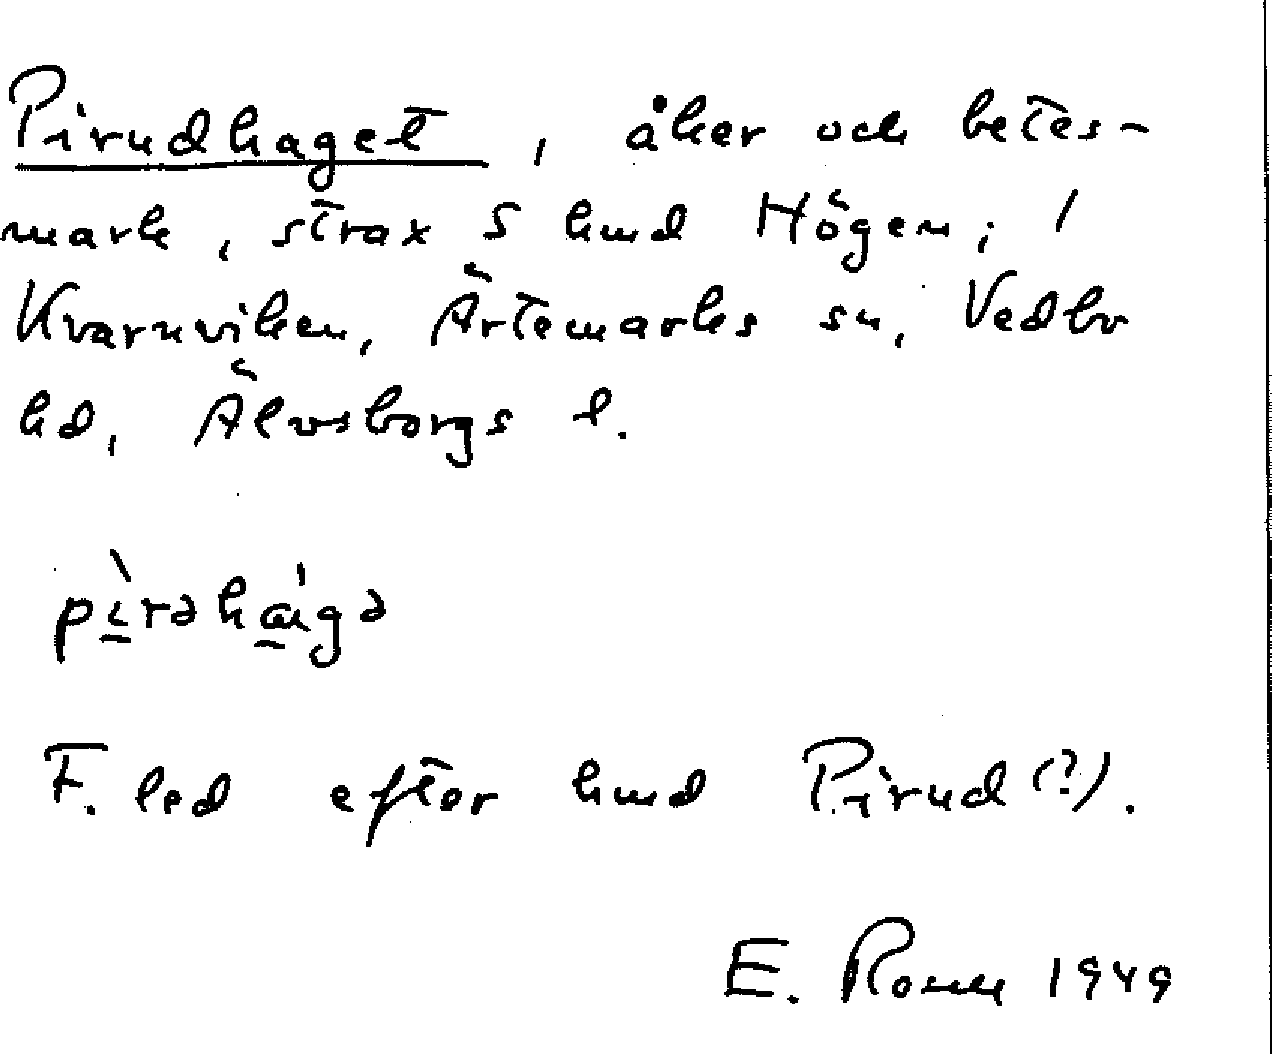 Pirudhaget, åker och betes-
mark, strax S hmd Högen, i
Kvarnviken, Ärtemarks sn, Vedbo
hd, Älvsborgs l.
F. led efter hmd Pirud (?).
E. 1949